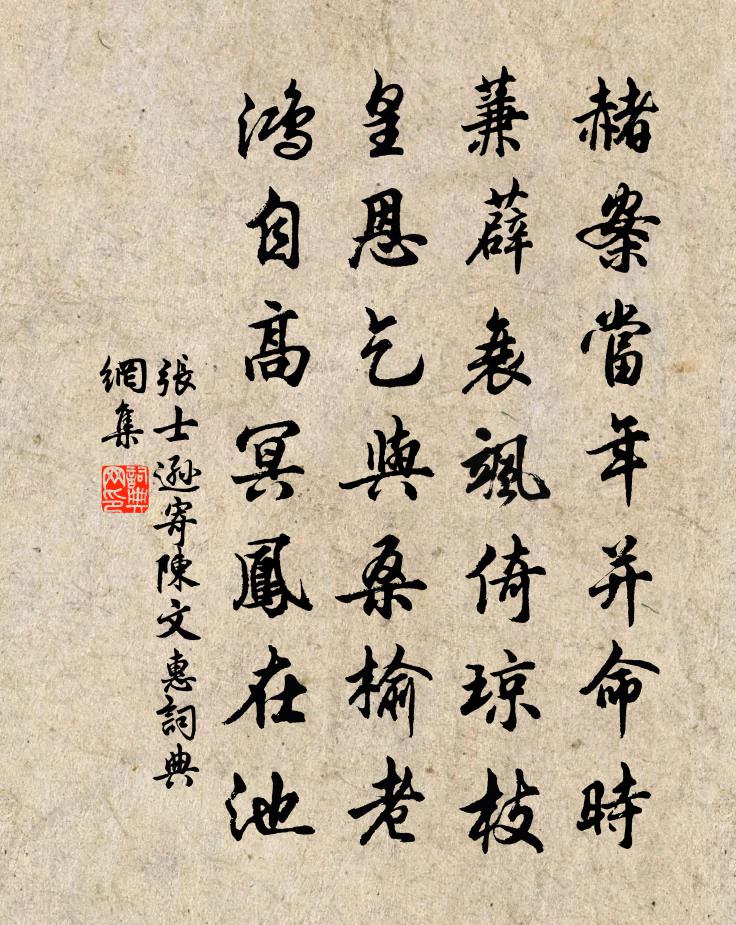 赭案當年并命時
蒹薜衰颯倚瓊枝
皇恩乞與桑榆老
鴻自高冥鳳在池
張士遜寄陳文惠詞典
網集
詞典
网印